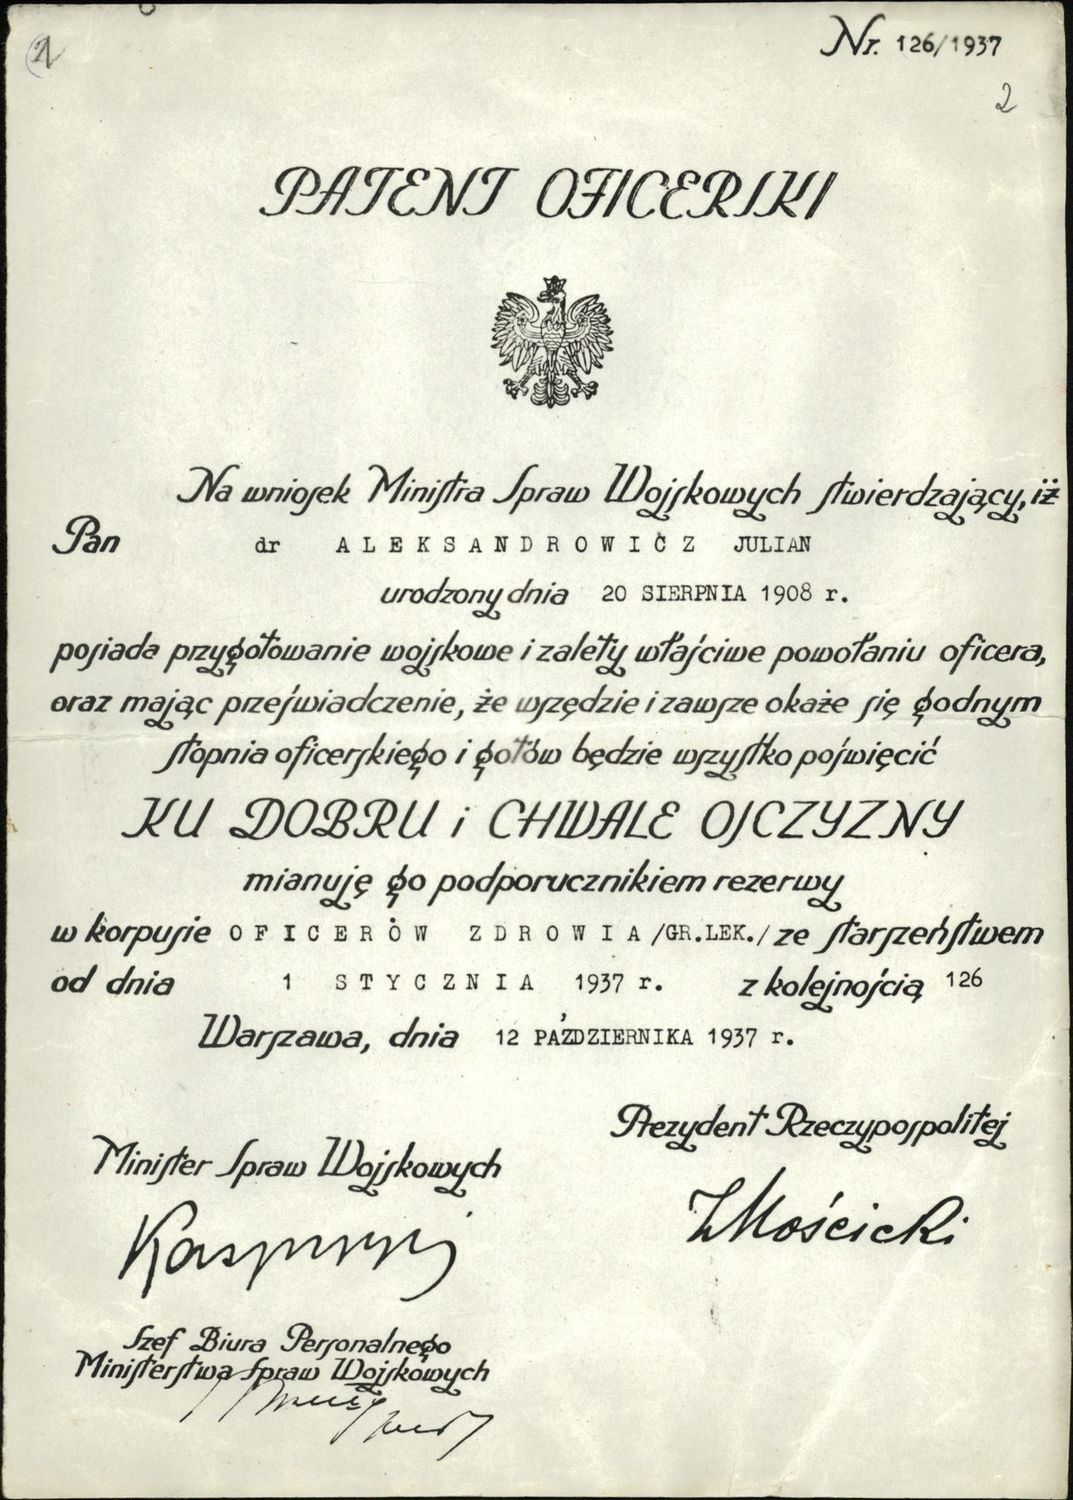 2
Nr. 126/1937
2
PATENT OFICERSKI
Na wniosek Ministra Spraw Wojskowych stwierdzający, iż
Pan dr ALEKSANDROWICZ JULIAN
urodzony dnia 20 SIERPNIA 1908 r.
posiada przygotowanie wojskowe i zalety właściwe powołaniu oficera,
oraz mając przeświadczenie, że wszędzie i zawsze okaże się godnym
stopnia oficerskiego i gotów będzie wszystko poświęcić
KU DOBRU i CHWALE OJCZYZNY
mianuję go podporucznikiem rezerwy
w korpusie OFICERÓW ZDROWIA /GR.LEK./ ze starszeństwem
od dnia 1 STYCZNIA 1937 r. z kolejnością 126
Warszawa, dnia 12 PAŹDZIERNIKA 1937 r.
Prezydent Rzeczypospolitej
Minister Spraw Wojskowych
IMościcki
Kasprzycki
Szef Biura Personalnego
Ministerstwa Spraw Wojskowych